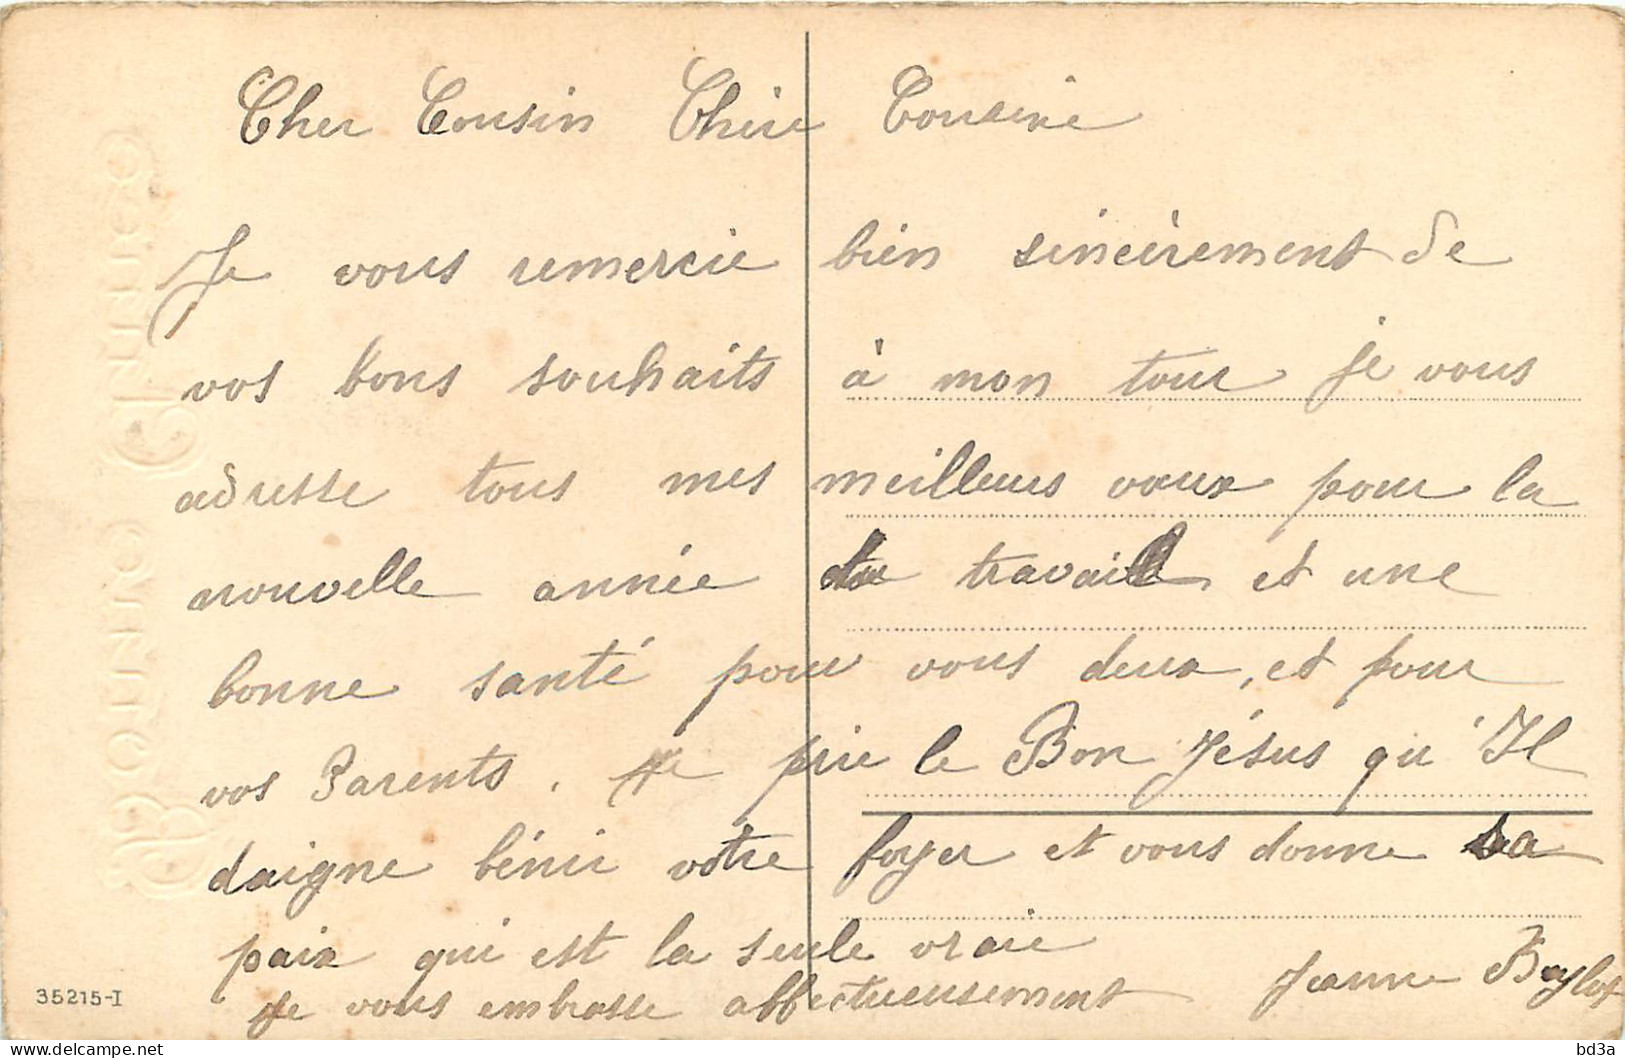 Cher Cousin Chère Cousine
Je vous remercie bien sincèrement de
vos bons souhaits à mon tour je vous
adresse tous mes meilleurs vœux pour la
nouvelle année du travail et une
bonne santé pour vous deux, et pour
vos Parents. Je prie le Bon Jésus qu'Il
daigne bénir votre foyer et vous donne sa
paix qui est la seule vraie
Je vous embrasse affectueusement Jeanne
35215-I
bd3a